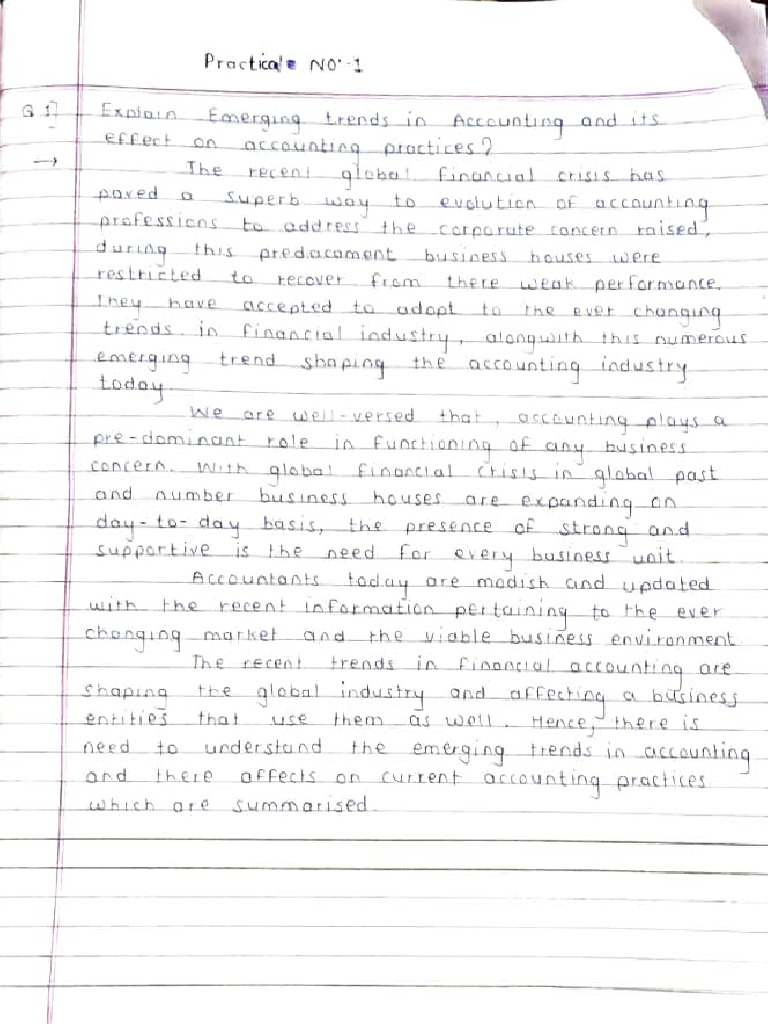 Practicale NO:-1
Q 1] Explain Emerging trends in Accounting and its
effect on accounting practices?
→ The recent global financial crisis has
paved a superb way to evolution of accounting
professions to address the corporate concern raised,
during this predacament business houses were
restricted to recover from there weak performance.
They have accepted to adopt to the ever changing
trends in financial industry, alongwith this numerous
emerging trend shaping the accounting industry
today.
We are well-versed that, accounting plays a
pre-dominant role in functioning of any business
concern. With global financial crisis in global past
and number business houses are expanding on
day-to-day basis, the presence of strong and
supportive is the need for every business unit.
Accountants today are modish and updated
with the recent information pertaining to the ever
changing market and the viable business environment.
The recent trends in financial accounting are
shaping the global industry and affecting a business
entities that use them as well. Hence, there is
need to understand the emerging trends in accounting
and there affects on current accounting practices
which are summarised.